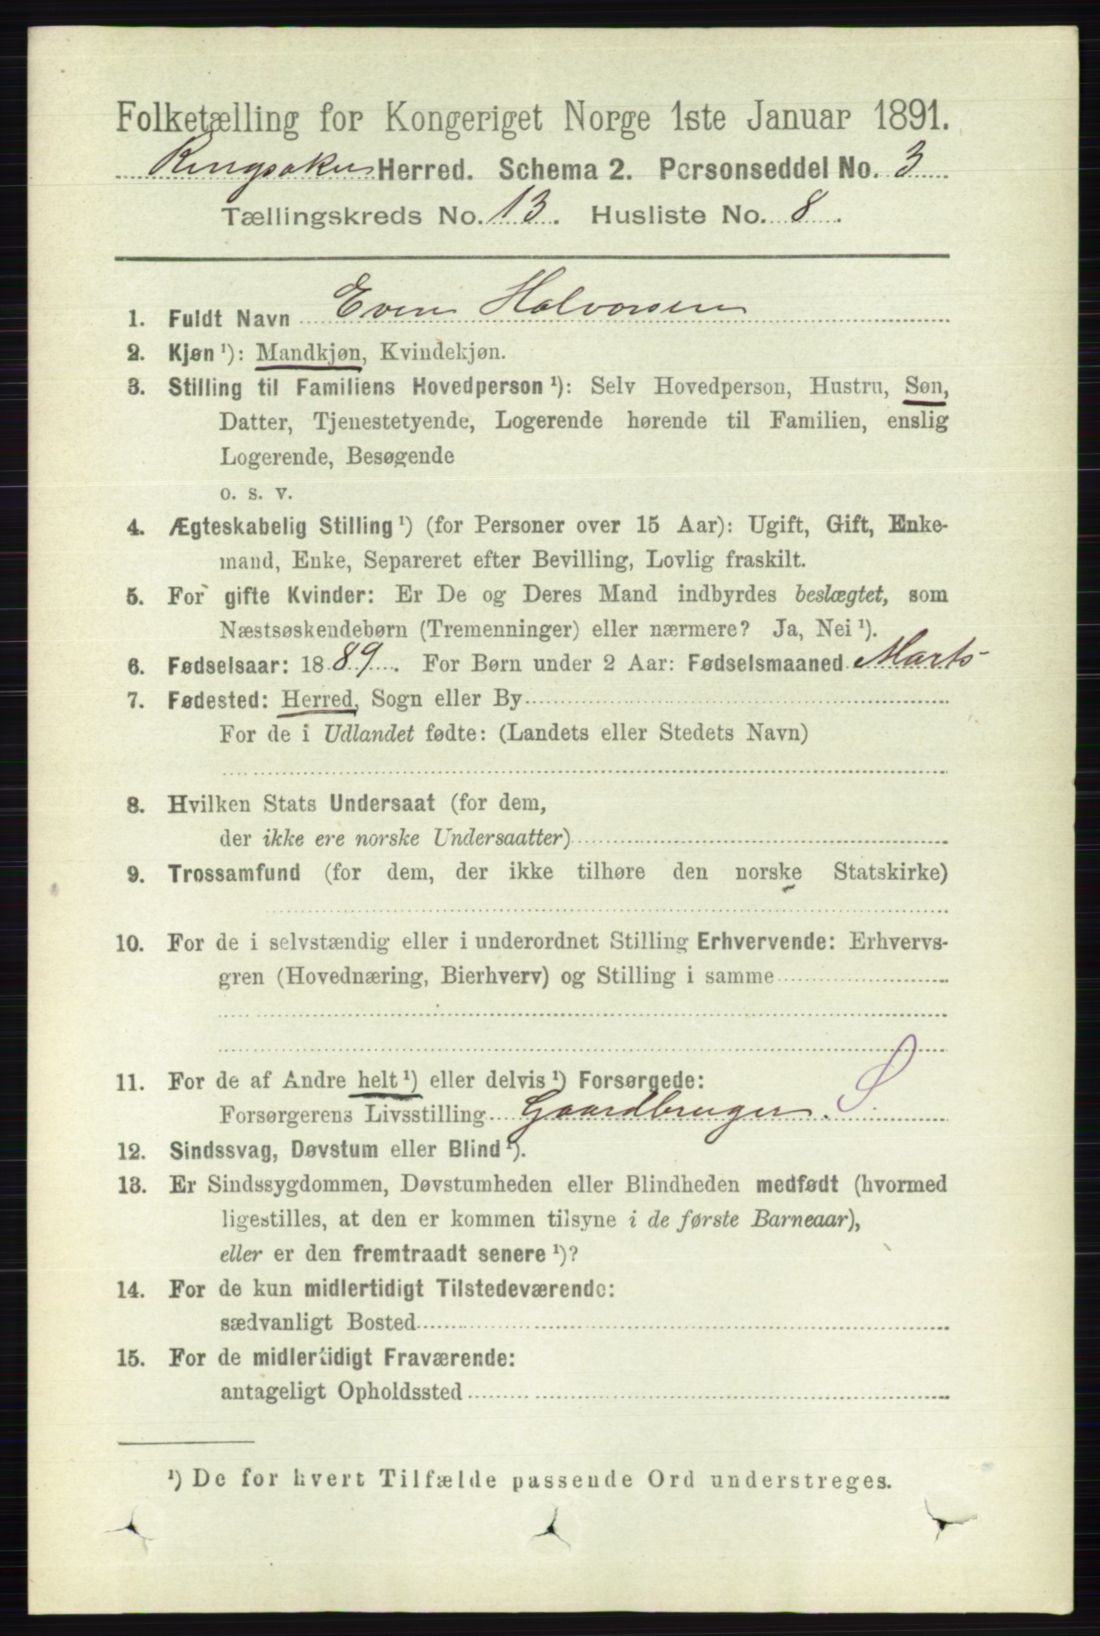 Folketælling for Kongeriget Norge 1ste Januar 1891.
Ringsaker Herred. Schema 2. Personseddel No. 3
Tællingskreds No. 13. Husliste No. 8.
1. Fuldt Navn Even Halvorsen
2. Kjøn ¹): Mandkjøn, Kvindekjøn.
3. Stilling til Familiens Hovedperson ¹): Selv Hovedperson, Hustru, Søn,
Datter, Tjenestetyende, Logerende hørende til Familien, enslig
Logerende, Besøgende
o. s. v.
4. Ægteskabelig Stilling ¹) (for Personer over 15 Aar): Ugift, Gift, Enke-
mand, Enke, Separeret efter Bevilling, Lovlig fraskilt.
5. For gifte Kvinder: Er De og Deres Mand indbyrdes beslægtet, som
Næstsøskendebørn (Tremenninger) eller nærmere? Ja, Nei ¹).
6. Fødselsaar: 1889. For Børn under 2 Aar: Fødselsmaaned Marts
7. Fødested: Herred, Sogn eller By
For de i Udlandet fødte: (Landets eller Stedets Navn)
8. Hvilken Stats Undersaat (for dem,
der ikke ere norske Undersaatter)
9. Trossamfund (for dem, der ikke tilhøre den norske Statskirke)
10. For de i selvstændig eller i underordnet Stilling Erhvervende: Erhvervs-
gren (Hovednæring, Bierhverv) og Stilling i samme
11. For de af Andre helt ¹) eller delvis ¹) Forsørgede:
Forsørgerens Livsstilling Gaardbruger. S.
12. Sindssvag, Døvstum eller Blind ¹).
13. Er Sindssygdommen, Døvstumheden eller Blindheden medfødt (hvormed
ligestilles, at den er kommen tilsyne i de første Barneaar),
eller er den fremtraadt senere ¹)?
14. For de kun midlertidigt Tilstedeværende:
sædvanligt Bosted
15. For de midlertidigt Fraværende:
antageligt Opholdssted
¹) De for hvert Tilfælde passende Ord understreges.